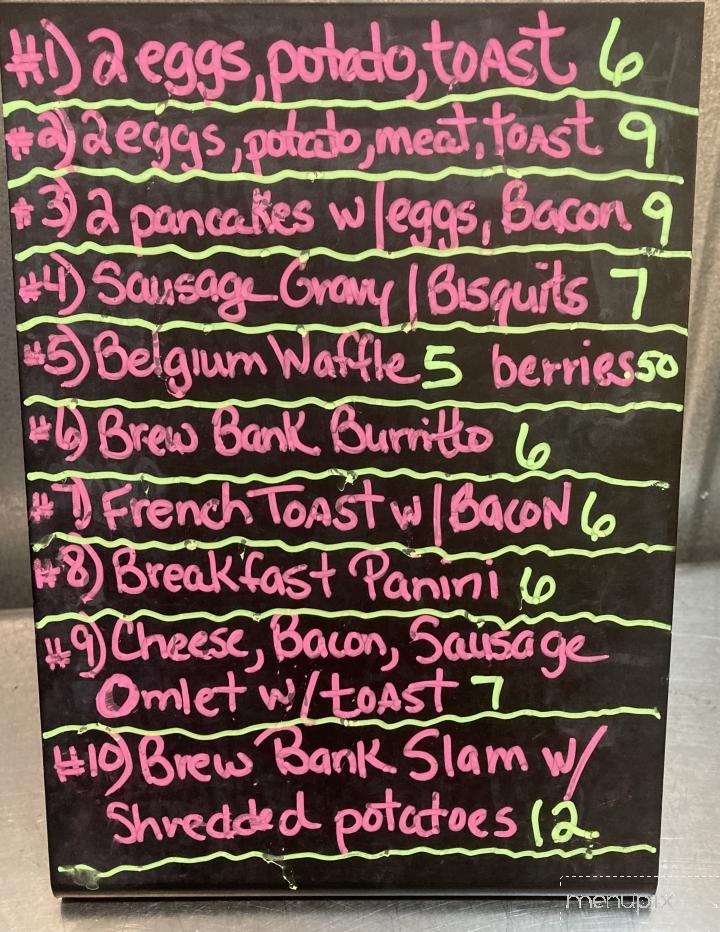 #1) 2 eggs, potato, toAst 6
#2) 2 eggs, potato, meat, toAst 9
#3) 2 pancakes w/eggs, Bacon 9
#4) Sausage Gravy / Bisquits 7
#5) Belgium Waffle 5 berries .50
#6) Brew Bank Burritto 6
#7) French ToAst w/BacoN 6
#8) Breakfast Panini 6
#9) Cheese, Bacon, Sausage
Omlet w/toAst 7
#10) Brew Bank Slam w/
Shredded potatoes 12
menupix